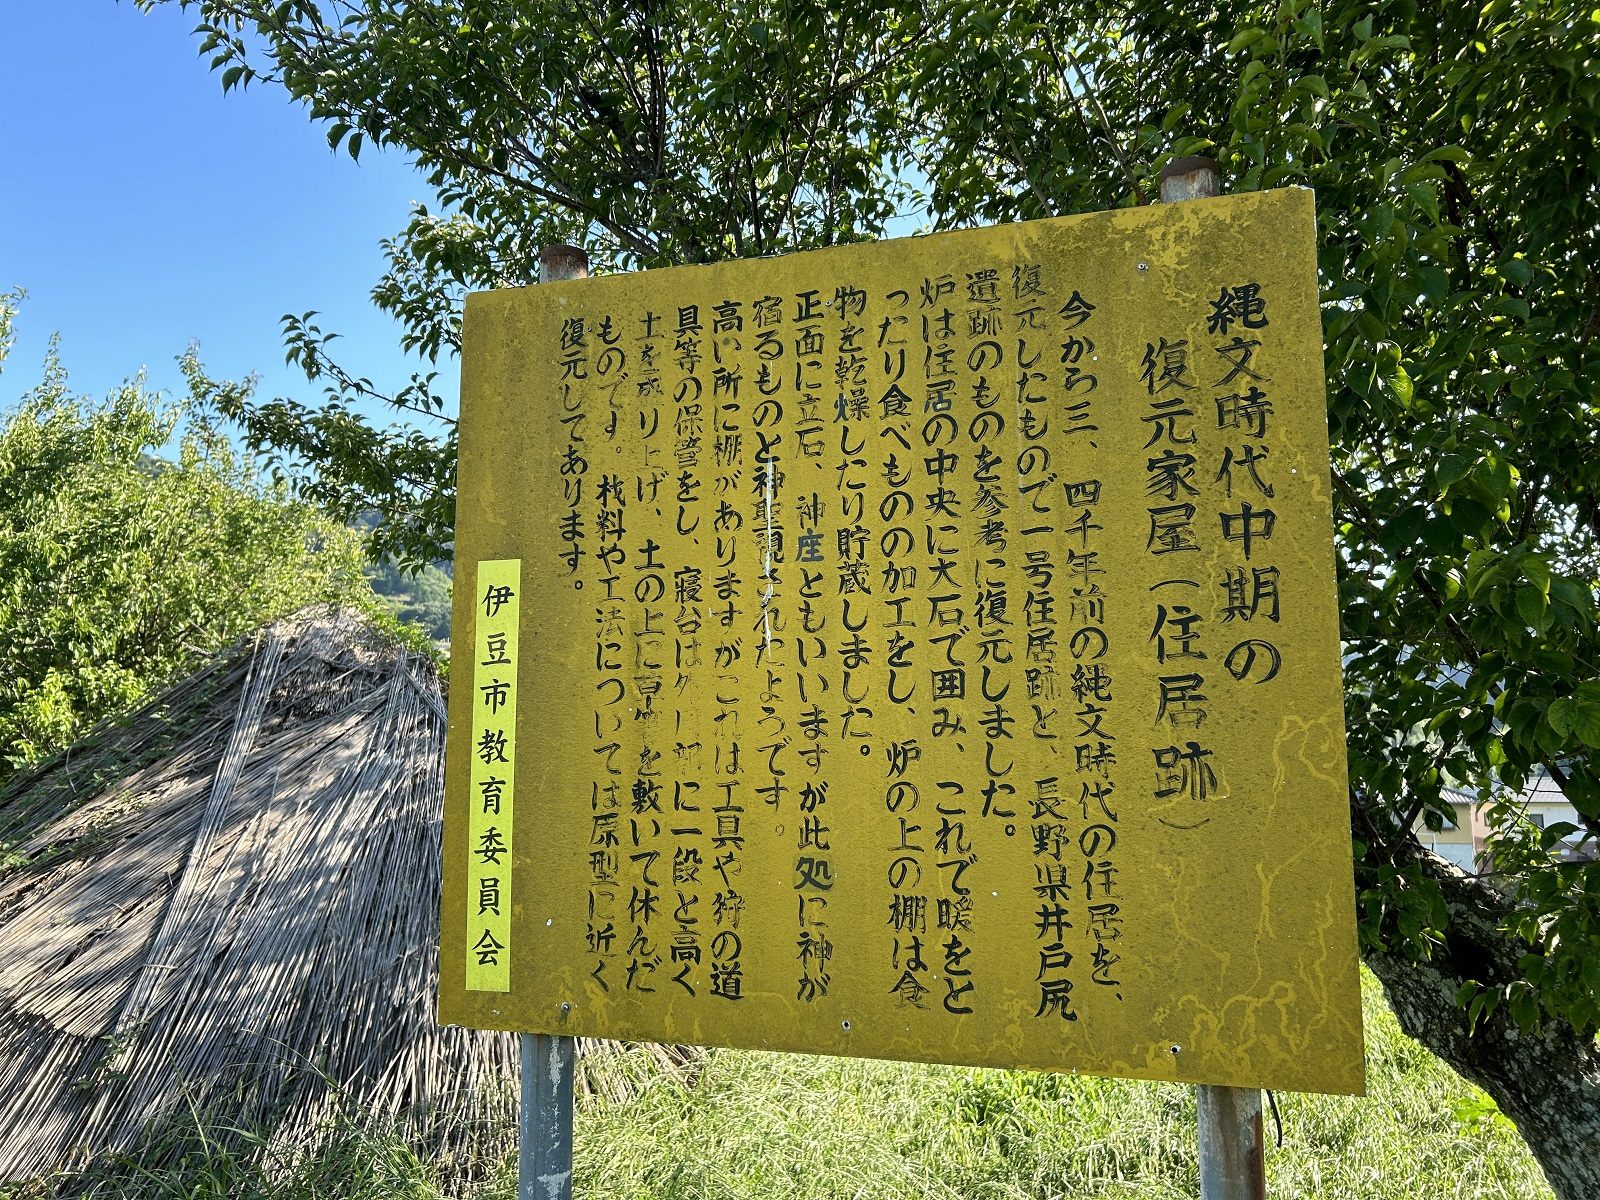 縄文時代中期の
復元家屋(住居跡)
今から三、四千年前の縄文時代の住居を、
復元したもので一号住居跡と、長野県井戸尻
遺跡のものを参考に復元しました。
炉は住居の中央に大石で囲み、これで暖をと
ったり食べものの加工をし、炉の上の棚は食
物を乾燥したり貯蔵しました。
正面に立石、神座ともいいますが此処に神が
宿るものと神聖視されたようです。
高い所に棚がありますがこれは工具や狩の道
具等の保管をし、寝台は に一段と高く
土を盛り上げ、土の上に を敷いて休んだ
ものです。材料や工法については原型に近く
復元してあります。
伊豆市教育委員会